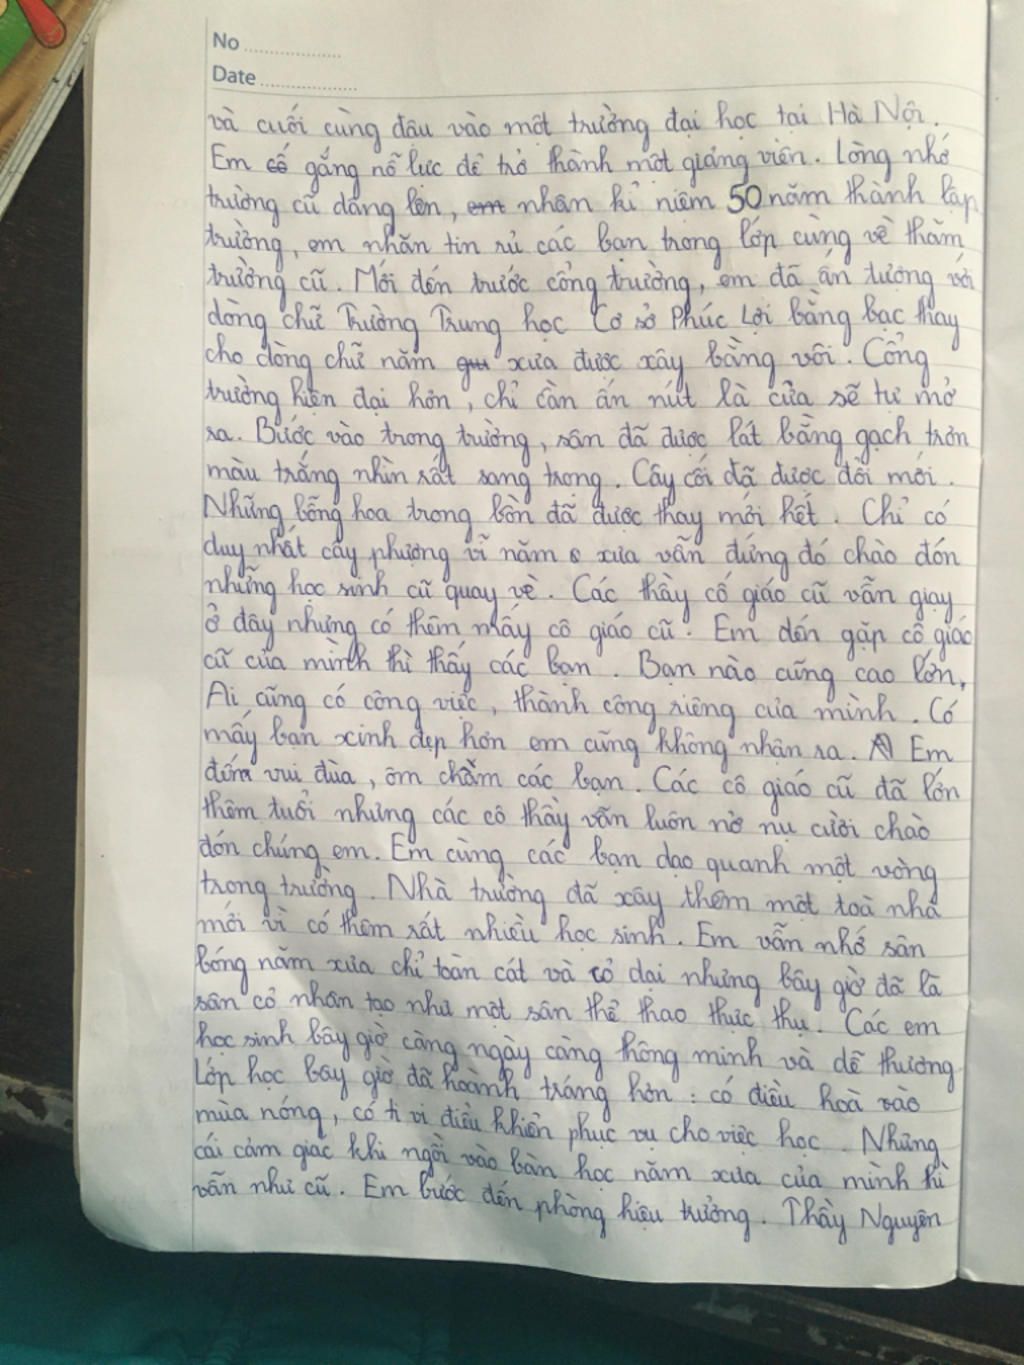 No
Date
và cuối cùng đậu vào một trường đại học tại Hà Nội.
Em cố gắng nỗ lực để trở thành một giảng viên. Lòng nhớ
trường cũ dâng lên, em nhân kỉ niệm 50 năm thành lập
trường, em nhắn tin rủ các bạn trong lớp cùng về thăm
trường cũ. Mới đến trước cổng trường, em đã ấn tượng với
dòng chữ Trường Trung học Cơ sở Phúc Lợi bằng bạc thay
cho dòng chữ năm xưa được xây bằng vôi. Cổng
trường hiện đại hơn, chỉ cần ấn nút là cửa sẽ tự mở
ra. Bước vào trong trường, sân đã được lát bằng gạch trơn
màu trắng nhìn rất sang trọng. Cây cối đã được đổi mới.
Những bông hoa trong bồn đã được thay mới hết. Chỉ có
duy nhất cây phượng vĩ năm xưa vẫn đứng đó chào đón
những học sinh cũ quay về. Các thầy cô giáo cũ vẫn giạy
ở đây nhưng có thêm mấy cô giáo cũ. Em đến gặp cô giáo
cũ của mình thì thấy các bạn. Bạn nào cũng cao lớn,
Ai cũng có công việc, thành công riêng của mình. Có
mấy bạn xinh đẹp hơn em cũng không nhận ra. Em
đến vui đùa, ôm chầm các bạn. Các cô giáo cũ đã lớn
thêm tuổi nhưng các cô thầy vẫn luôn nở nụ cười chào
đón chúng em. Em cùng các bạn dạo quanh một vòng
trong trường. Nhà trường đã xây thêm một toà nhà
mới vì có thêm rất nhiều học sinh. Em vẫn nhớ sân
bóng năm xưa chỉ toàn cát và cỏ dại nhưng bây giờ đã là
sân cỏ nhân tạo như một sân thể thao thực thụ. Các em
học sinh bây giờ càng ngày càng thông minh và dễ thương
Lớp học bây giờ đã hoành tráng hơn: có điều hoà vào
mùa nóng, có ti vi điều khiển phục vụ cho việc học. Nhưng
cái cảm giác khi ngồi vào bàn học năm xưa của mình thì
vẫn như cũ. Em bước đến phòng hiệu trưởng. Thầy Nguyên